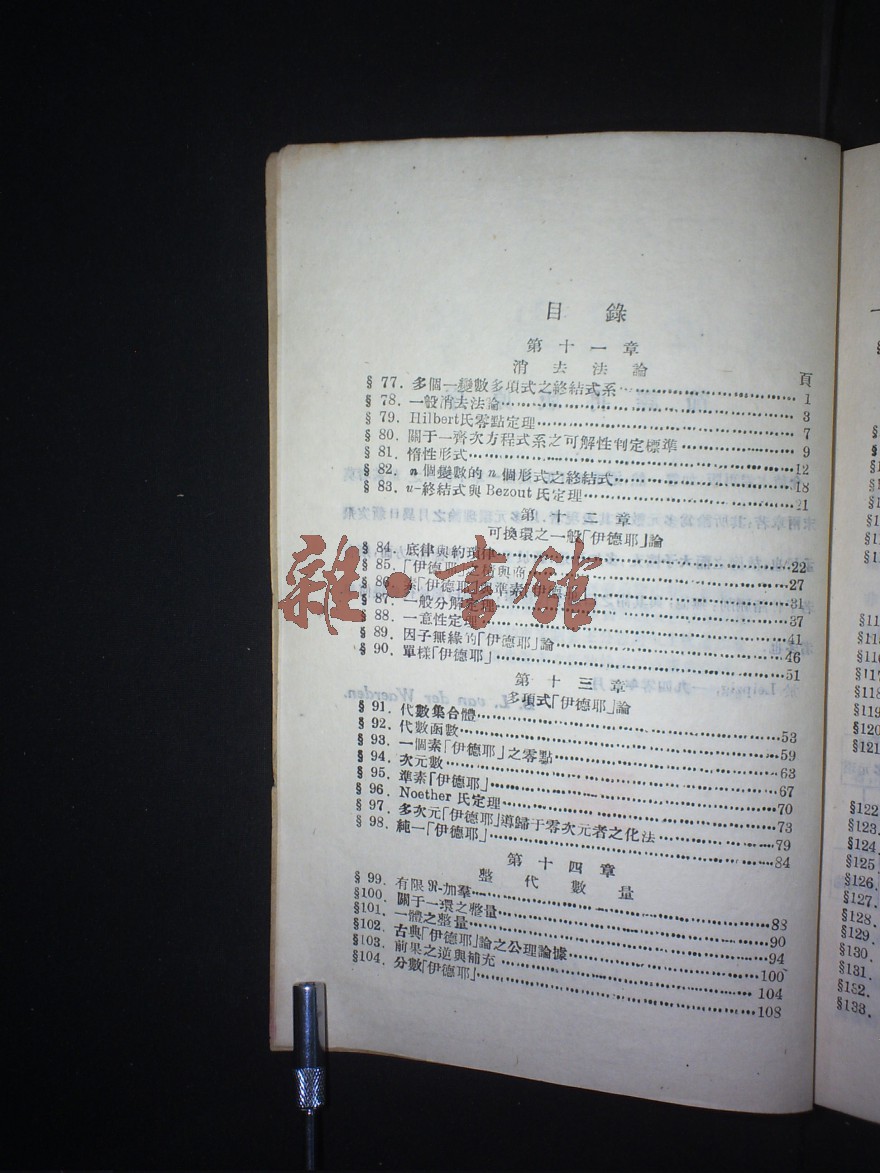 目 錄
第 十 一 章
消 去 法 論
頁
§ 77. 多個一變數多項式之終結式系 1
§ 78. 一般消去法論 3
§ 79. Hilbert氏零點定理 7
§ 80. 關于一齊次方程式系之可解性判定標準 9
§ 81. 惰性形式 12
§ 82. n 個變數的 n 個形式之終結式 18
§ 83. u-終結式與 Bezout 氏定理 21
第 十 二 章
可換環之一般「伊德耶」論
§ 84. 底律與約環律 22
§ 85. 「伊德耶」之積與商 27
§ 86. 素「伊德耶」與準素「伊德 31
§ 87. 一般分解定理 37
§ 88. 一意性定理 41
§ 89. 因子無緣的「伊德耶」論 46
§ 90. 單樣「伊德耶」 51
第 十 三 章
多項式「伊德耶」論
§ 91. 代數集合體 53
§ 92. 代數函數 59
§ 93. 一個素「伊德耶」之零點 63
§ 94. 次元數 67
§ 95. 準素「伊德耶」 70
§ 96. Noether 氏定理 73
§ 97. 多次元「伊德耶」導歸于零次元者之化法 79
§ 98. 純一「伊德耶」 84
第 十 四 章
整 代 數 量
§ 99. 有限 ℜ-加羣 88
§100. 關于一環之整量 90
§101. 一體之整量 94
§102. 古典「伊德耶」論之公理論據 100
§103. 前果之逆與補充 104
§104. 分數「伊德耶」 108
雜·書館
§116
§117
§118
§119
§120
§121
§122
§123.
§124
§125
§126.
§127.
§128.
§129.
§130.
§131.
§132.
§133.